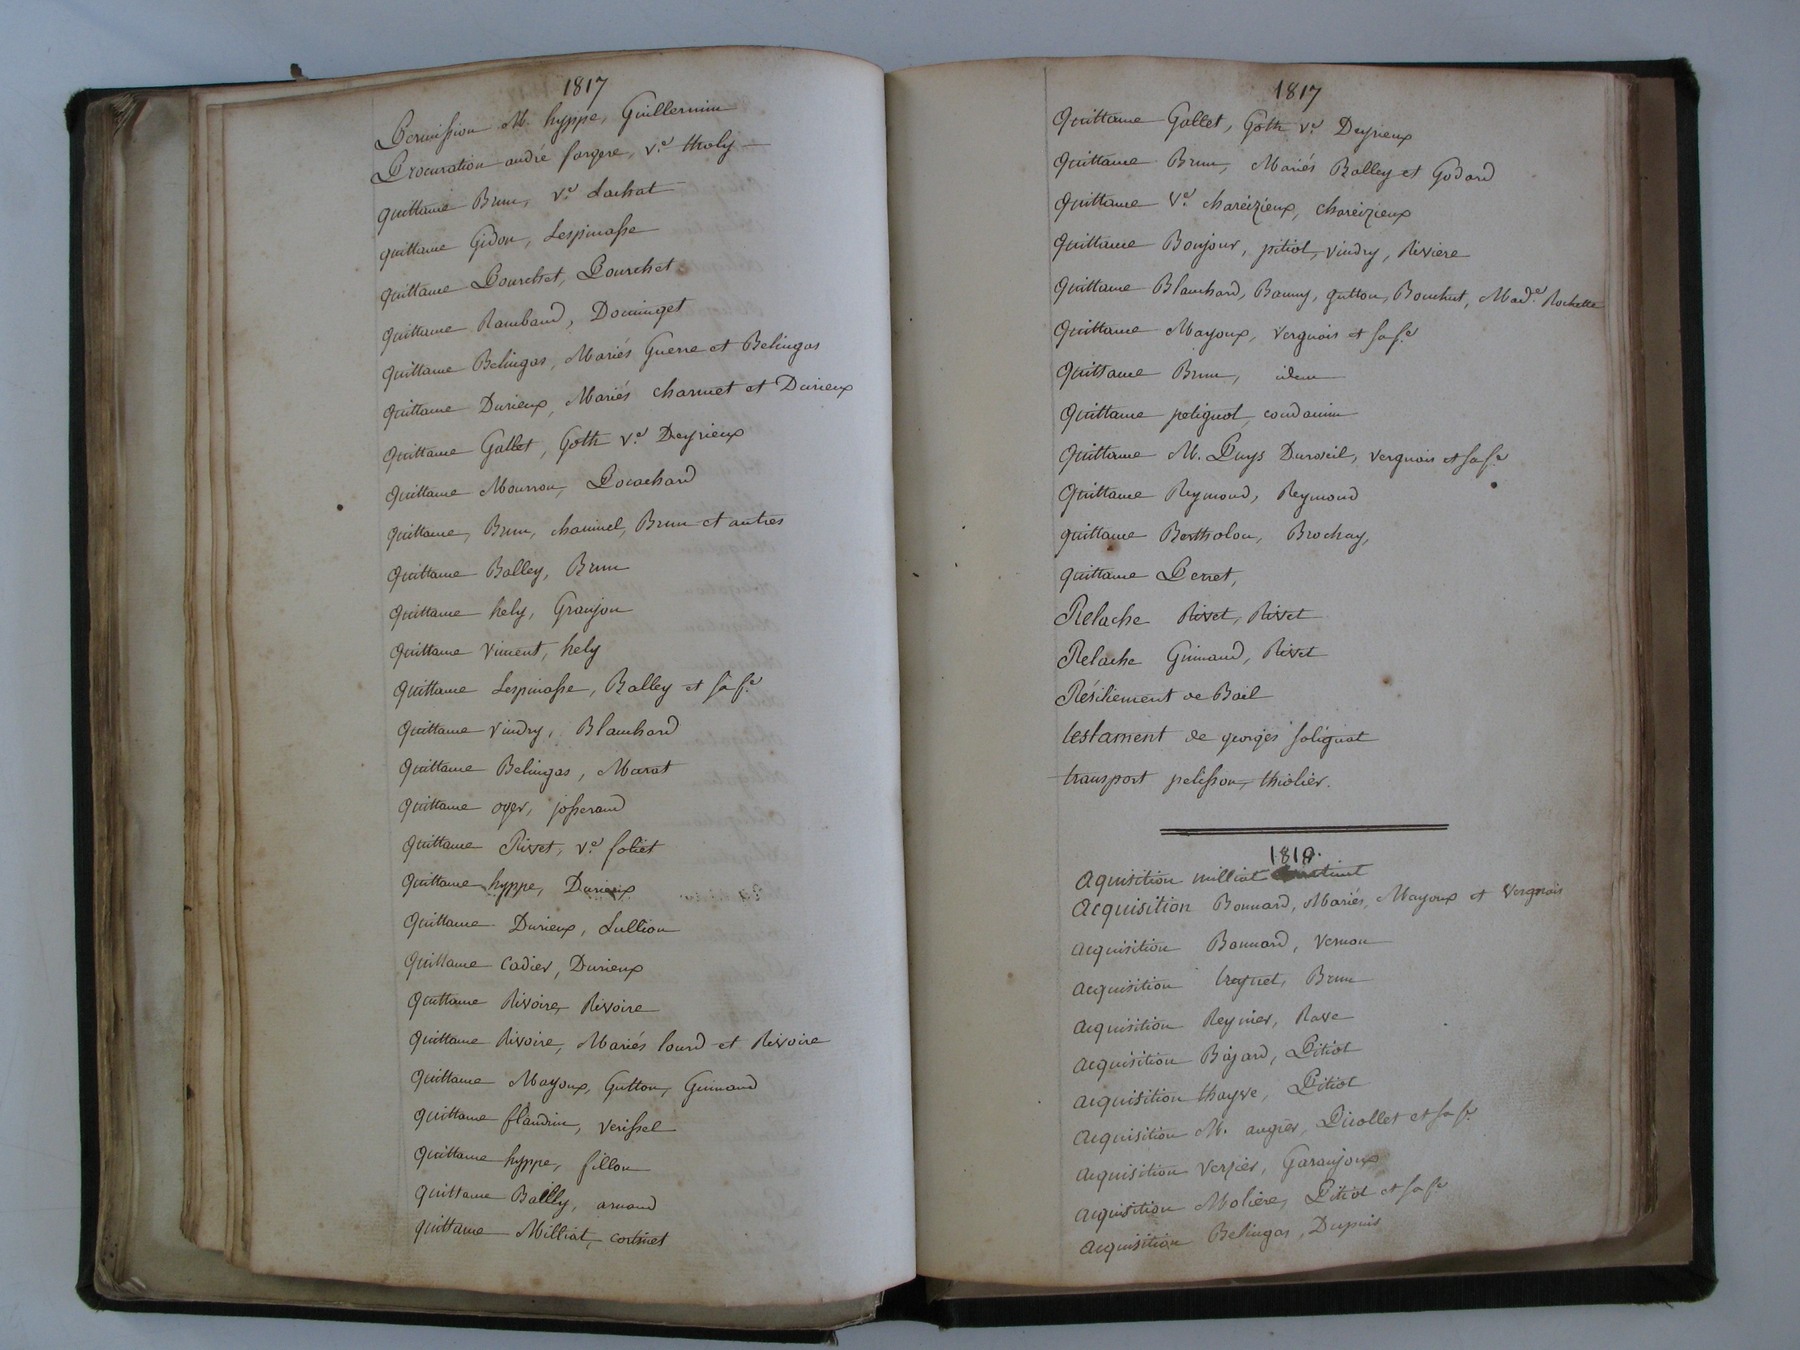 1817
Permission M. hyppe, Guillermin
Procuration andré fargere, Ve. tholy
quittance Brun, Ve. Lachat
quittance Gidon, Lespinasse
quittance Pourchet, Pourchet
quittance Rambaud, Dominget
quittance Belingas, Mariés Guerre et Belingas
quittance Durieux, Mariés charmet et Durieux
quittance Gallet, Goth Ve. Deyrieux
quittance Mourron, Pocachard
quittance, Brun, chammel, Brun et autres
quittance Balley, Brun
quittance hely, Granjon
quittance Vincent, hely
quittance Lespinasse, Balley et sa fe.
quittance Vindry, Blanchard
quittance Belingas, Marat
quittance oyer, josserand
quittance Rivet, Ve. foliet
quittance hyppe, Durieux
quittance Durieux, Lullion
quittance cadier, Durieux
quittance Rivoire, Rivoire
quittance Rivoire, Mariés lourd et Rivoire
quittance Mayoux, Gutton, Guinand
quittance flandrin, Verissel
quittance hyppe, fillon
quittance Bailly, arnaud
quittance Milliat, cortinet
1817
quittance Gallet, Goth Ve. Deyrieux
quittance Brun, Mariés Balley et Godard
quittance Ve. chareizieux, chareizieux
quittance Bonjour, pitiot, Vindry, Riviere
quittance Blanchard, Bauny, gutton, Bouchut, Made. Rochette
quittance Mayoux, Vergnais et sa fe.
quittance Brun, idem
quittance petignot, condamin
quittance M. Puys Duroseil, Vergnais et sa fe.
quittance Reymond, Reymond
quittance Bertholon, Brochay,
quittance Perret,
Relache Rivet, Rivet
Relache Guinand, Rivet
Résiliement de Bail
testament de georges salignat
transport pelisson, thiolier.
1818.
Aquisition milliat
Acquisition Bonnard, Mariés, Mayoux et Vergnais
acquisition Bonnard, Vernon
acquisition treynet, Brun
acquisition Reynier, Rave
acquisition Bajard, Pitiot
acquisition thayve, Pitiot
acquisition M. augier, Picollet et sa fe.
acquisition Verzier, Garanjoux
acquisition Moliere, Pitiot et sa fe
acquisition Belingas, Dupuis